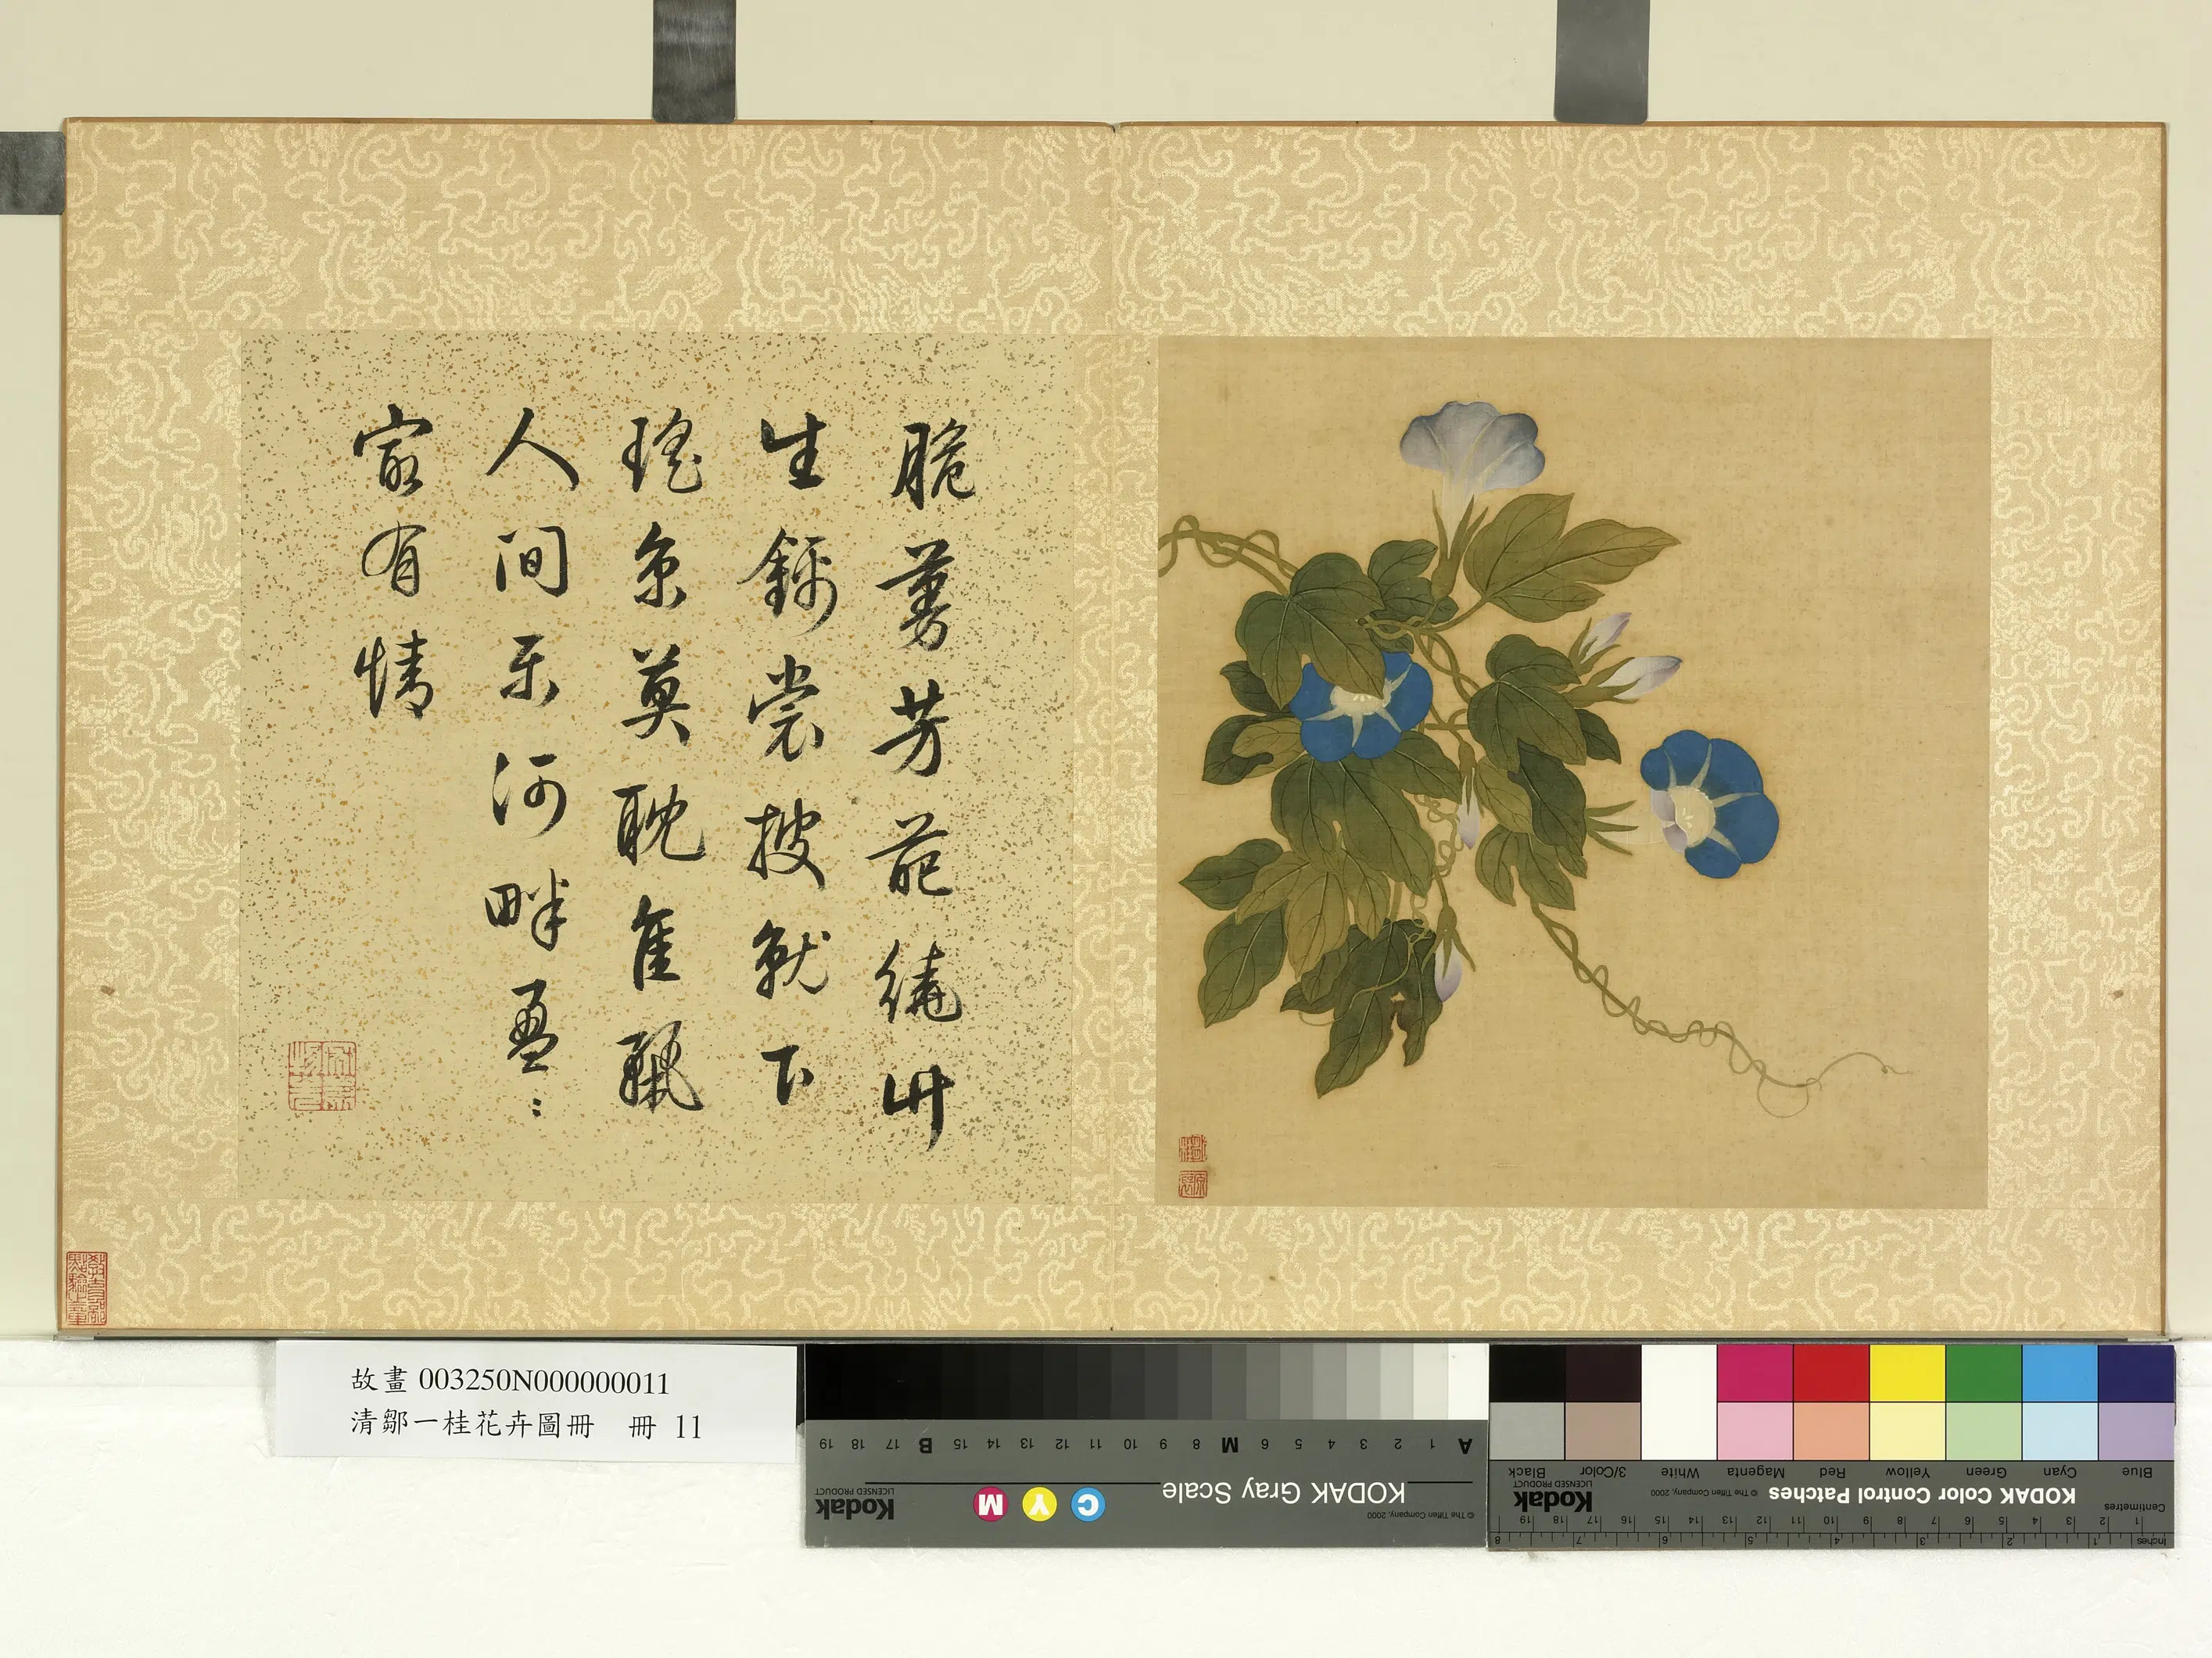 脆蔓芳葩繞竹
生裳披就下
瑤京莫耽
人間樂河畔盈〻
㝡有情
教育部點驗之章
故畫 003250N000000011
清鄒一桂花卉圖冊 冊 11
A 1 2 3 4 5 6 M 8 9 10 11 12 13 14 15 B 17 18 19
KODAK Gray Scale
C Y M
Kodak
LICENSED PRODUCT
© The Tiffen Company, 2000
Blue Cyan Green Yellow Red Magenta White 3/Color Black
KODAK Color Control Patches
© The Tiffen Company, 2000
Kodak
LICENSED PRODUCT
Centimetres
1 2 3 4 5 6 7 8 9 10 11 12 13 14 15 16 17 18 19
Inches
1 2 3 4 5 6 7 8